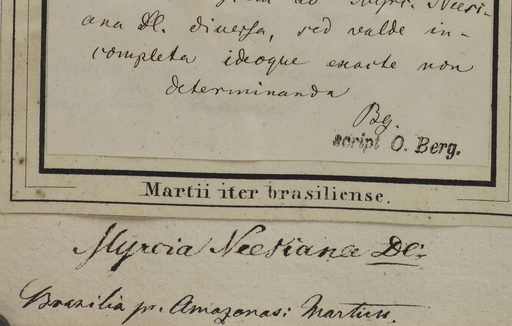 ab Myrc. Neesi-
ana DC. diversa, sed valde in-
completa ideoque exacte non
determinanda
Bg.
script O. Berg.
Martii iter brasiliense.
Myrcia Neesiana DC.
Brazilia pr. Amazonas: Martius.